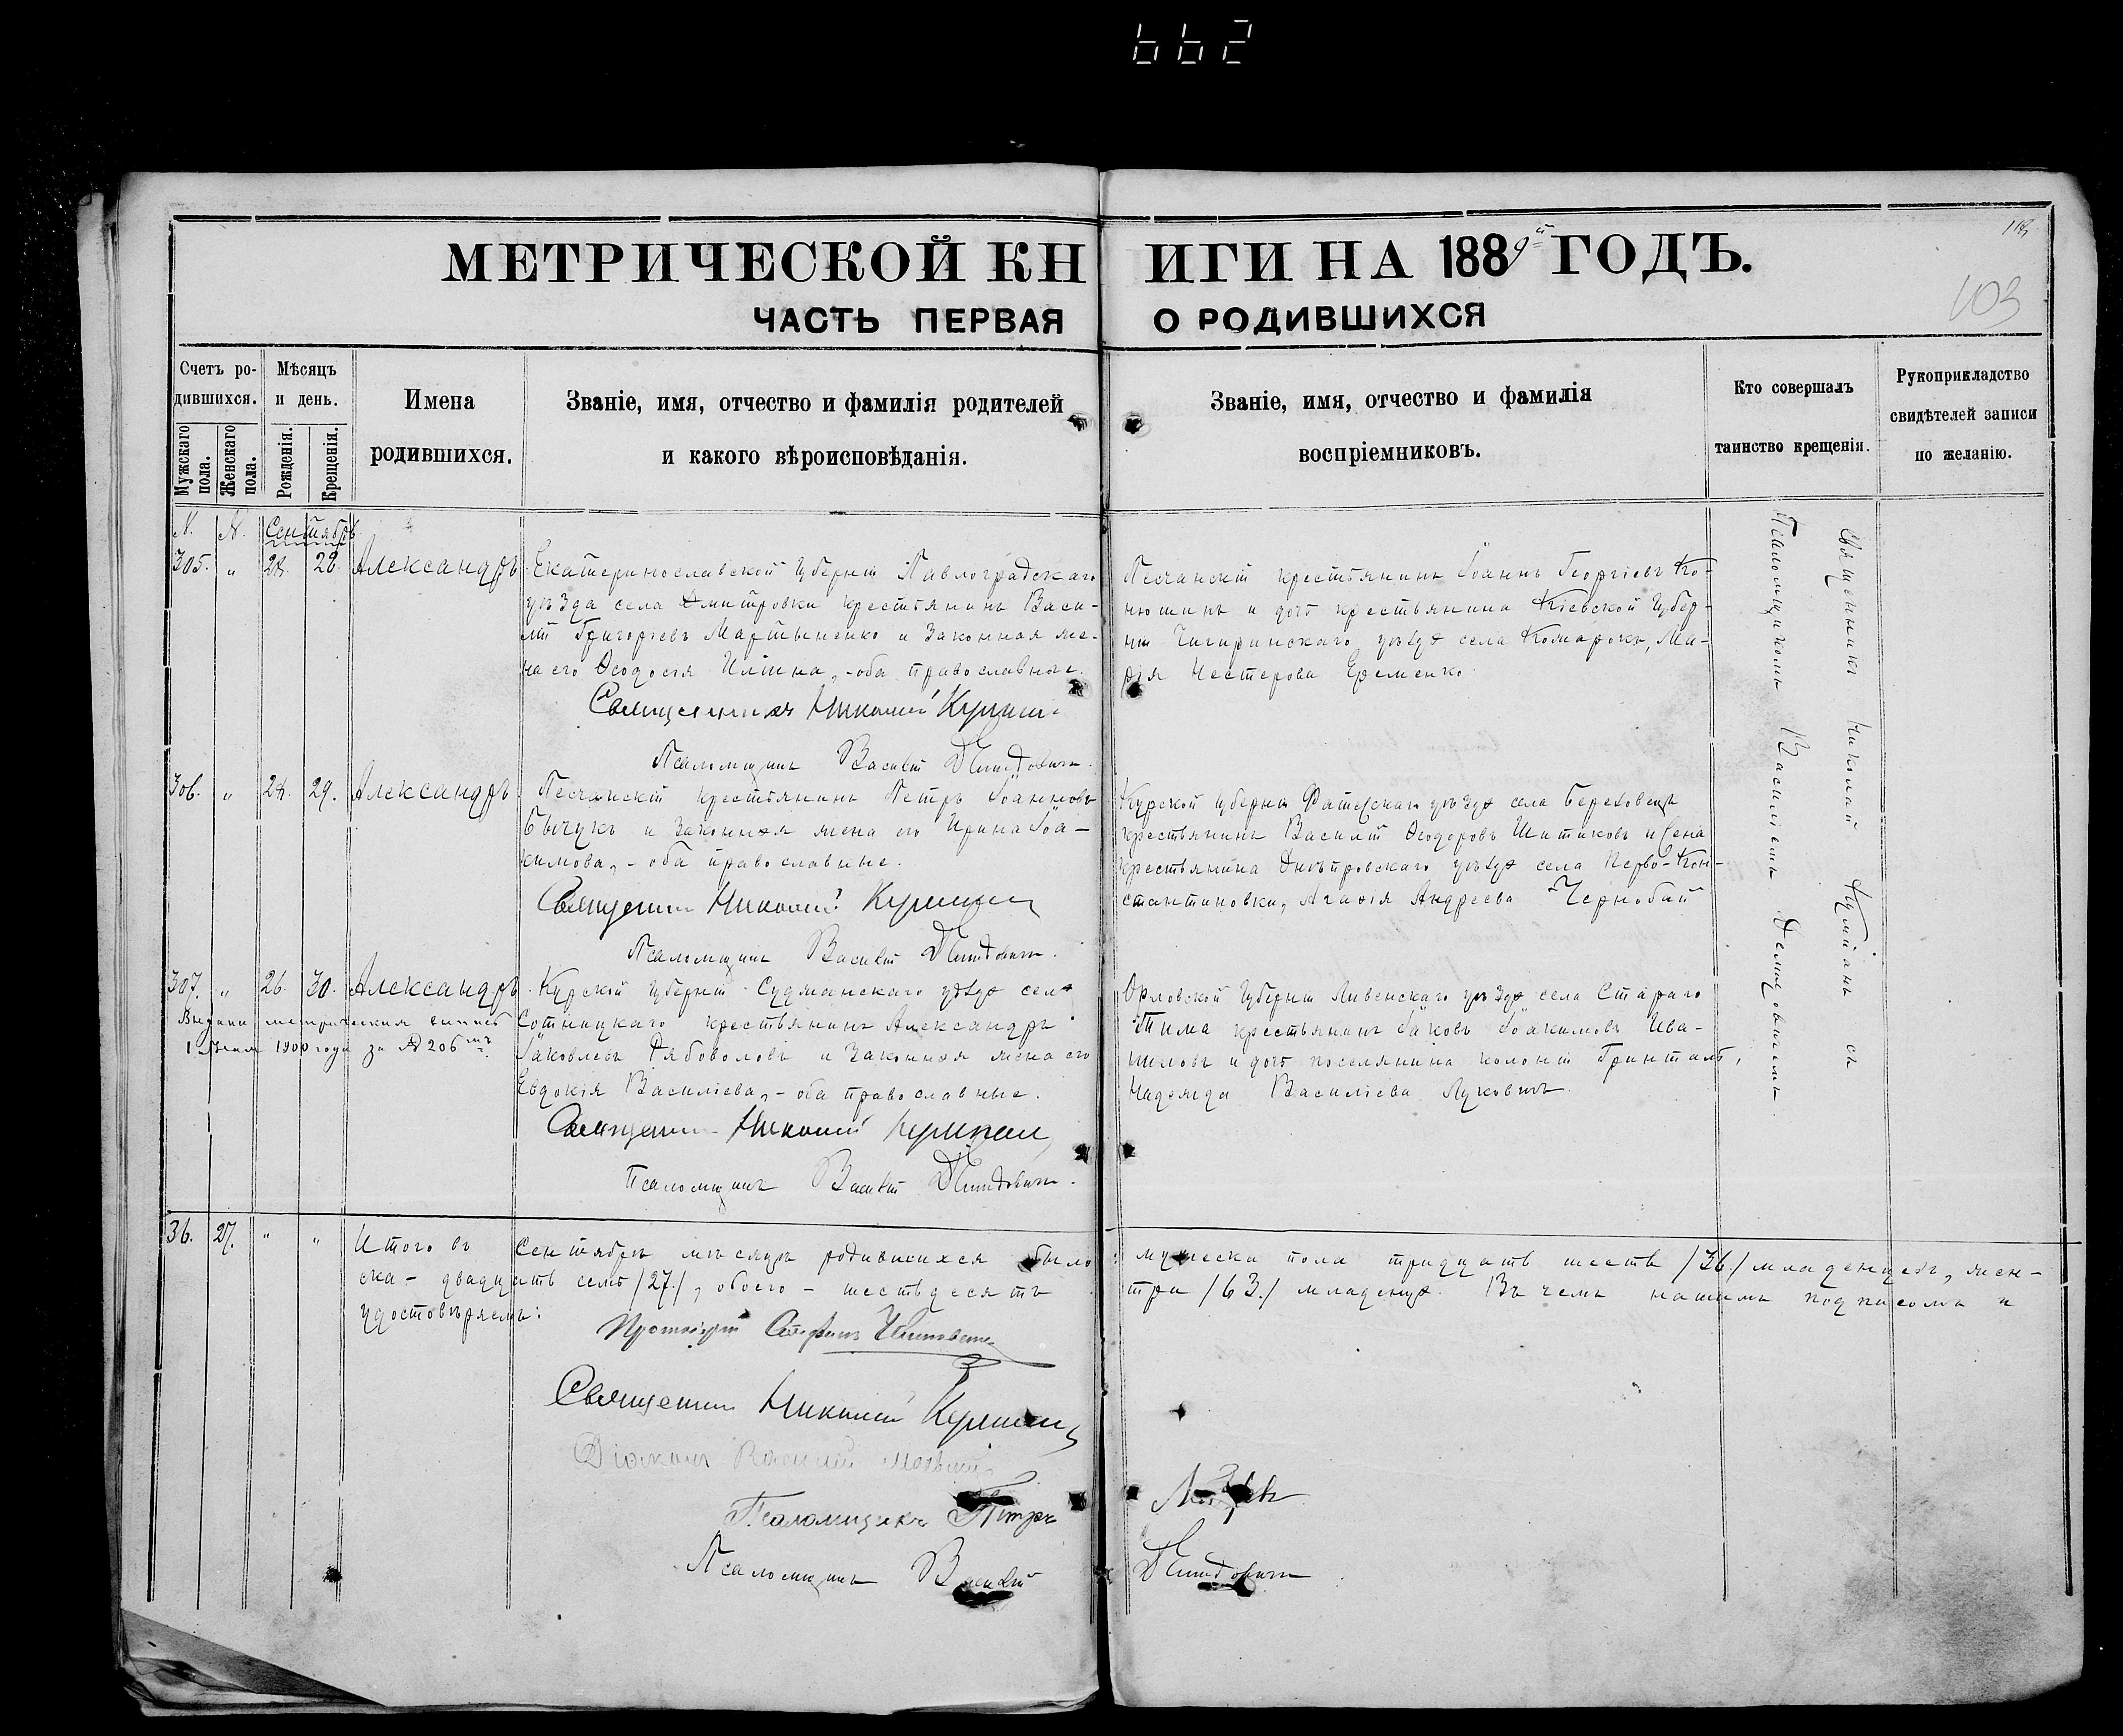 662
118
103
МЕТРИЧЕСКОЙ КНИГИ НА 1889й ГОДЪ.
ЧАСТЬ ПЕРВАЯ О РОДИВШИХСЯ
Счетъ родившихся.
Мужскаго пола.
Женскаго пола.
Мѣсяцъ и день.
Рожденія.
Крещенія.
Имена родившихся.
Званіе, имя, отчество и фамилія родителей
и какого вѣроисповѣданія.
Званіе, имя, отчество и фамилія
воспріемниковъ.
Кто совершалъ
таинство крещенія.
Рукоприкладство
свидѣтелей записи
по желанію.
N. N. Сентябрь
305. " 24. 28. Александръ
Екатеринославской губерніи Павлоградскаго
уѣзда села Дмитровки крестьянинъ Васи-
лій Григоріевъ Мартыненко и законная же-
на его Ѳеодосія Иліина, - оба православные.
Священникъ Николай
Псаломщикъ Василій Демидовичъ.
Песчанскій крестьянинъ Іоаннъ Георгіевъ Ко-
нюшинъ и дочь крестьянина Кіевской губер-
ніи Чигиринскаго уѣзда села Комаровки, Ма-
рія Нестерова Еременко.
306. " 24. 29. Александръ
Песчанскій крестьянинъ Петръ Іоанновъ
Бычукъ и законная жена его Ирина Іоа-
кимова, - оба православные.
Священникъ Николай
Псаломщикъ Василій Демидовичъ.
Курской губерніи Фатежскаго уѣзда села
крестьянинъ Василій Ѳеодоровъ Шитиковъ и жена
крестьянина Днѣпровскаго уѣзда села Перво-Кон-
стантиновки, Агафія Андреева Чернобай
307. " 26. 30. Александръ
Выписи
1900 года за № 206
Курской губерніи Суджанскаго уѣзда села
Сотницкаго крестьянинъ Александръ
Іаковлевъ Рябоволовъ и законная жена его
Евдокія Василіева, - оба православные.
Священникъ Николай
Псаломщикъ Василій Демидовичъ.
Орловской губерніи Ливенскаго уѣзда села Стараго
Тима крестьянинъ Іаковъ Іоакимовъ Ива-
шиловъ и дочь поселянина колоніи Гринталь,
Надежда Василіева Луковичъ
Священникъ Николай съ
Псаломщикомъ Василіемъ Демидовичемъ
36. 27. " "
Итого въ Сентябрѣ мѣсяцѣ родившихся было: мужеска пола тридцать шесть /36./ младенцевъ, жен-
ска - двадцать семь /27./, обоего - шестьдесятъ три /63./ младенца. Въ чемъ нашимъ подписомъ и
удостовѣряемъ:
Протоіерей Стефанъ
Священникъ Николай
Діаконъ Василій
Псаломщикъ Петръ
Псаломщикъ Василій Демидовичъ